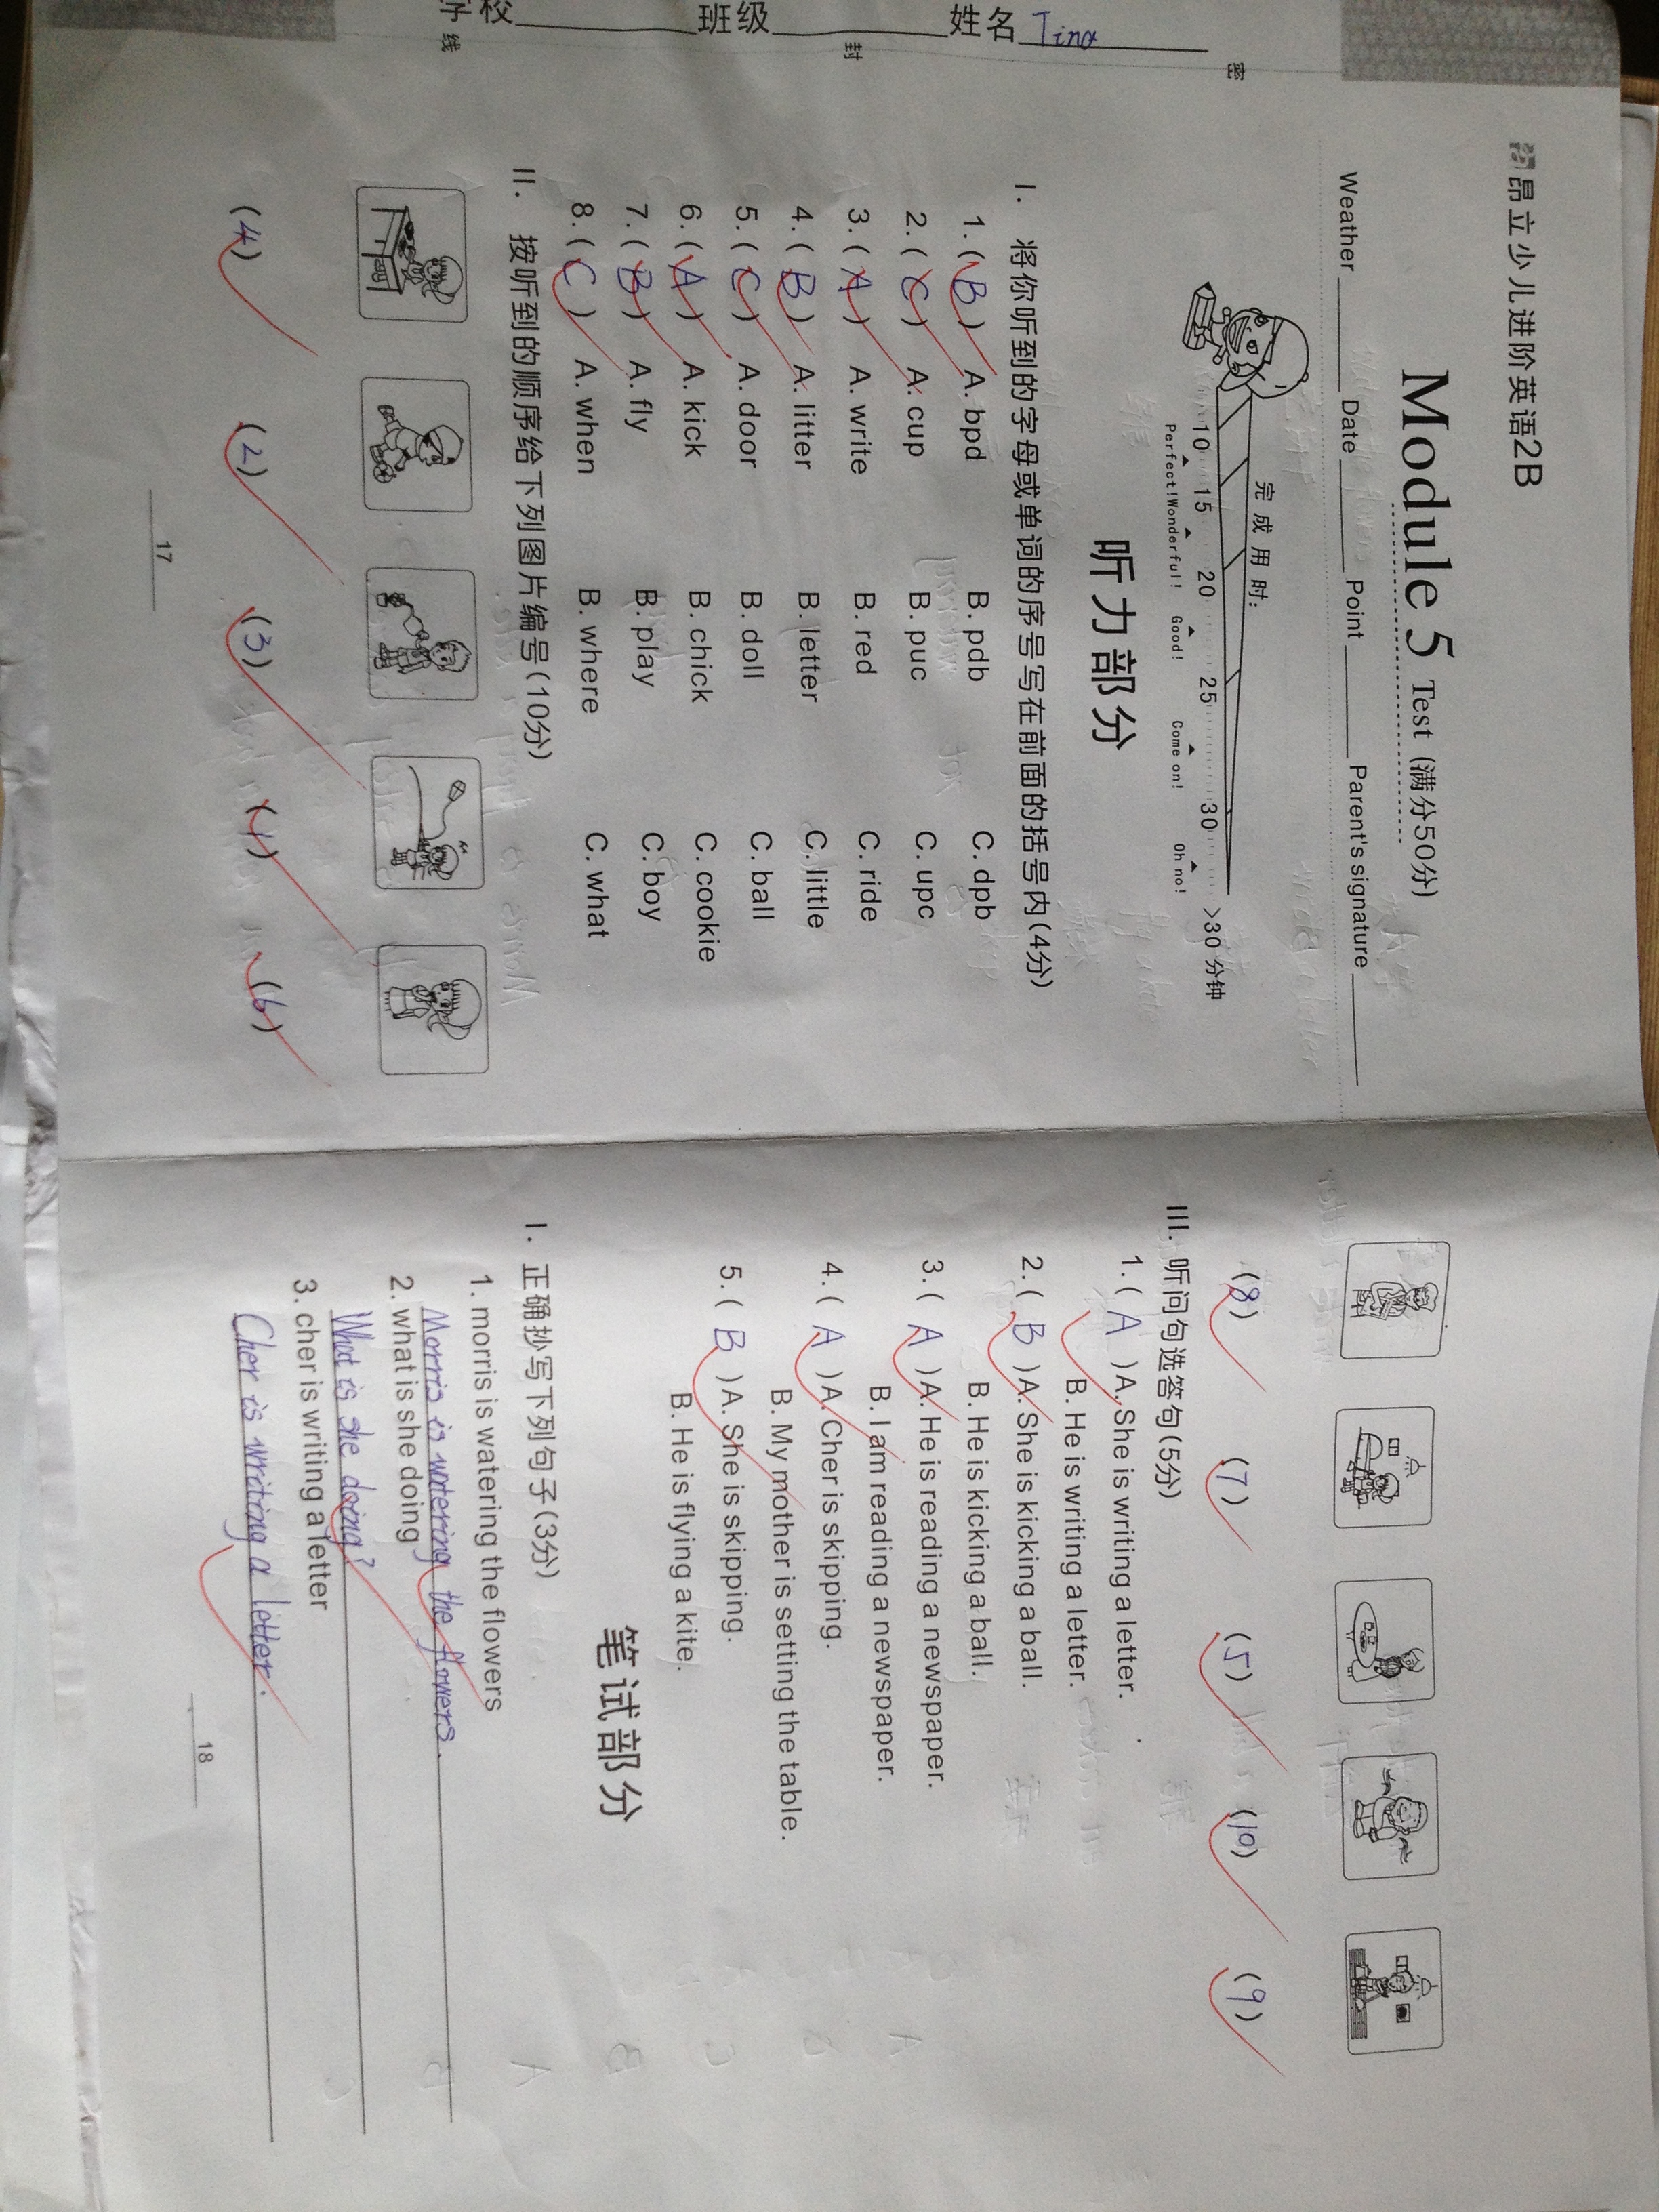 学校 班级 姓名 Tina
线 封 密
昂立少儿进阶英语2B
Module 5 Test (满分50分)
Weather Date Point Parent's signature
完成用时:
10 15 20 25 30 >30 分钟
Perfect! Wonderful! Good! Come on! Oh no!
听力部分
I. 将你听到的字母或单词的序号写在前面的括号内(4分)
1. (B) A. bpd B. pdb C. dpb
2. (C) A. cup B. puc C. upc
3. (A) A. write B. red C. ride
4. (B) A. litter B. letter C. little
5. (C) A. door B. doll C. ball
6. (A) A. kick B. chick C. cookie
7. (B) A. fly B. play C. boy
8. (C) A. when B. where C. what
II. 按听到的顺序给下列图片编号(10分)
(4) (2) (3) (1) (6)
17
(8) (7) (5) (10) (9)
III. 听问句选答句(5分)
1. ( A ) A. She is writing a letter.
B. He is writing a letter.
2. ( B ) A. She is kicking a ball.
B. He is kicking a ball.
3. ( A ) A. He is reading a newspaper.
B. I am reading a newspaper.
4. ( A ) A. Cher is skipping.
B. My mother is setting the table.
5. ( B ) A. She is skipping.
B. He is flying a kite.
笔试部分
I. 正确抄写下列句子(3分)
1. morris is watering the flowers
Morris is watering the flowers.
2. what is she doing
What is she doing?
3. cher is writing a letter
Cher is writing a letter.
18